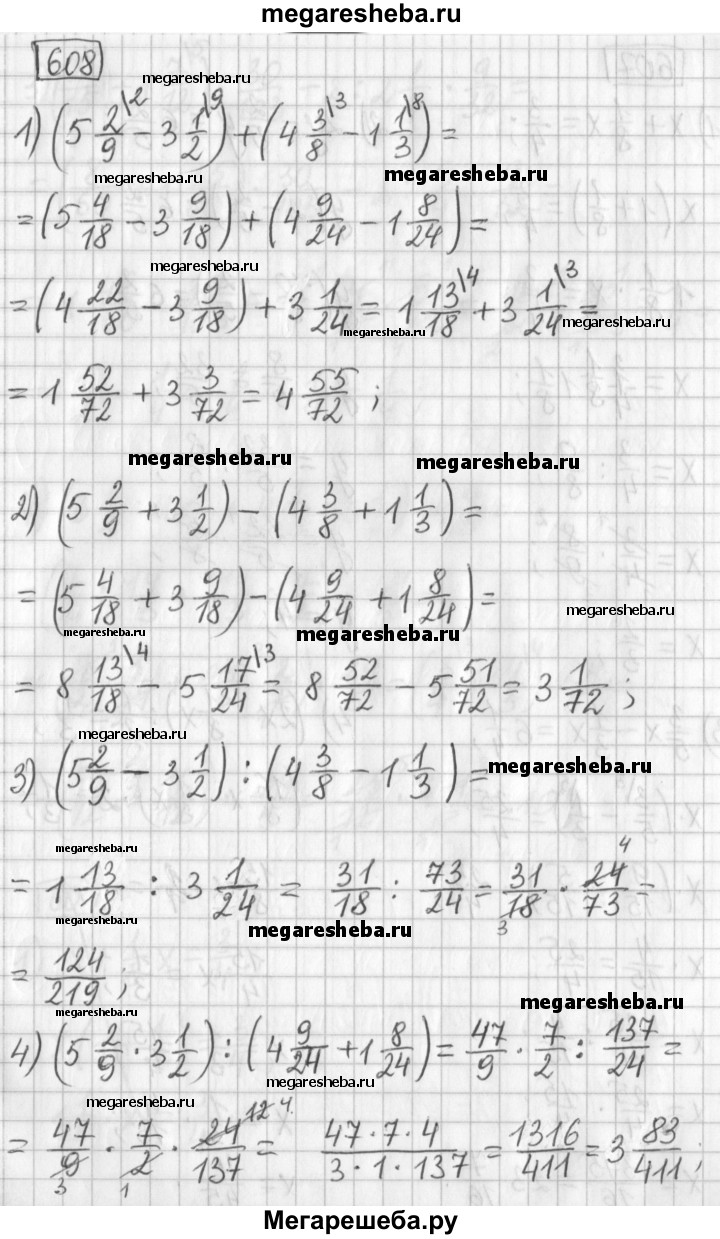 megaresheba.ru
608
megaresheba.ru
1) (5 2/9 \2 − 3 1/2 \9) + (4 3/8 \3 − 1 1/3 \8) =
megaresheba.ru megaresheba.ru
= (5 4/18 − 3 9/18) + (4 9/24 − 1 8/24) =
megaresheba.ru
= (4 22/18 − 3 9/18) + 3 1/24 = 1 13/18 \4 + 3 1/24 \3 =
megaresheba.ru megaresheba.ru
= 1 52/72 + 3 3/72 = 4 55/72 ;
megaresheba.ru megaresheba.ru
2) (5 2/9 + 3 1/2) − (4 3/8 + 1 1/3) =
= (5 4/18 + 3 9/18) − (4 9/24 + 1 8/24) =
megaresheba.ru
megaresheba.ru megaresheba.ru
= 8 13/18 \4 − 5 17/24 \3 = 8 52/72 − 5 51/72 = 3 1/72 ;
megaresheba.ru
3) (5 2/9 − 3 1/2) : (4 3/8 − 1 1/3) =
megaresheba.ru
megaresheba.ru
= 1 13/18 : 3 1/24 = 31/18 : 73/24 = 31/18 3 · 24 4/73 =
megaresheba.ru megaresheba.ru
= 124/219 ;
megaresheba.ru
4) (5 2/9 · 3 1/2) : (4 9/24 + 1 8/24) = 47/9 · 7/2 : 137/24 =
megaresheba.ru
megaresheba.ru
= 47/9 3 · 7/2 1 · 24 12 4/137 = 47 · 7 · 4/3 · 1 · 137 = 1316/411 = 3 83/411 ;
Мегарешеба.ру